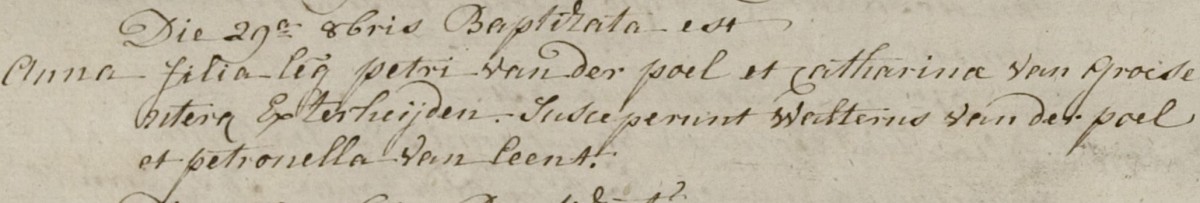 Die 29a 8bris Baptizata est
Anna filia leg petri van der poel et Catharinæ van Groese
uterq Ex terheijden. Susceperunt Walterus van der poel
et petronella van leent.